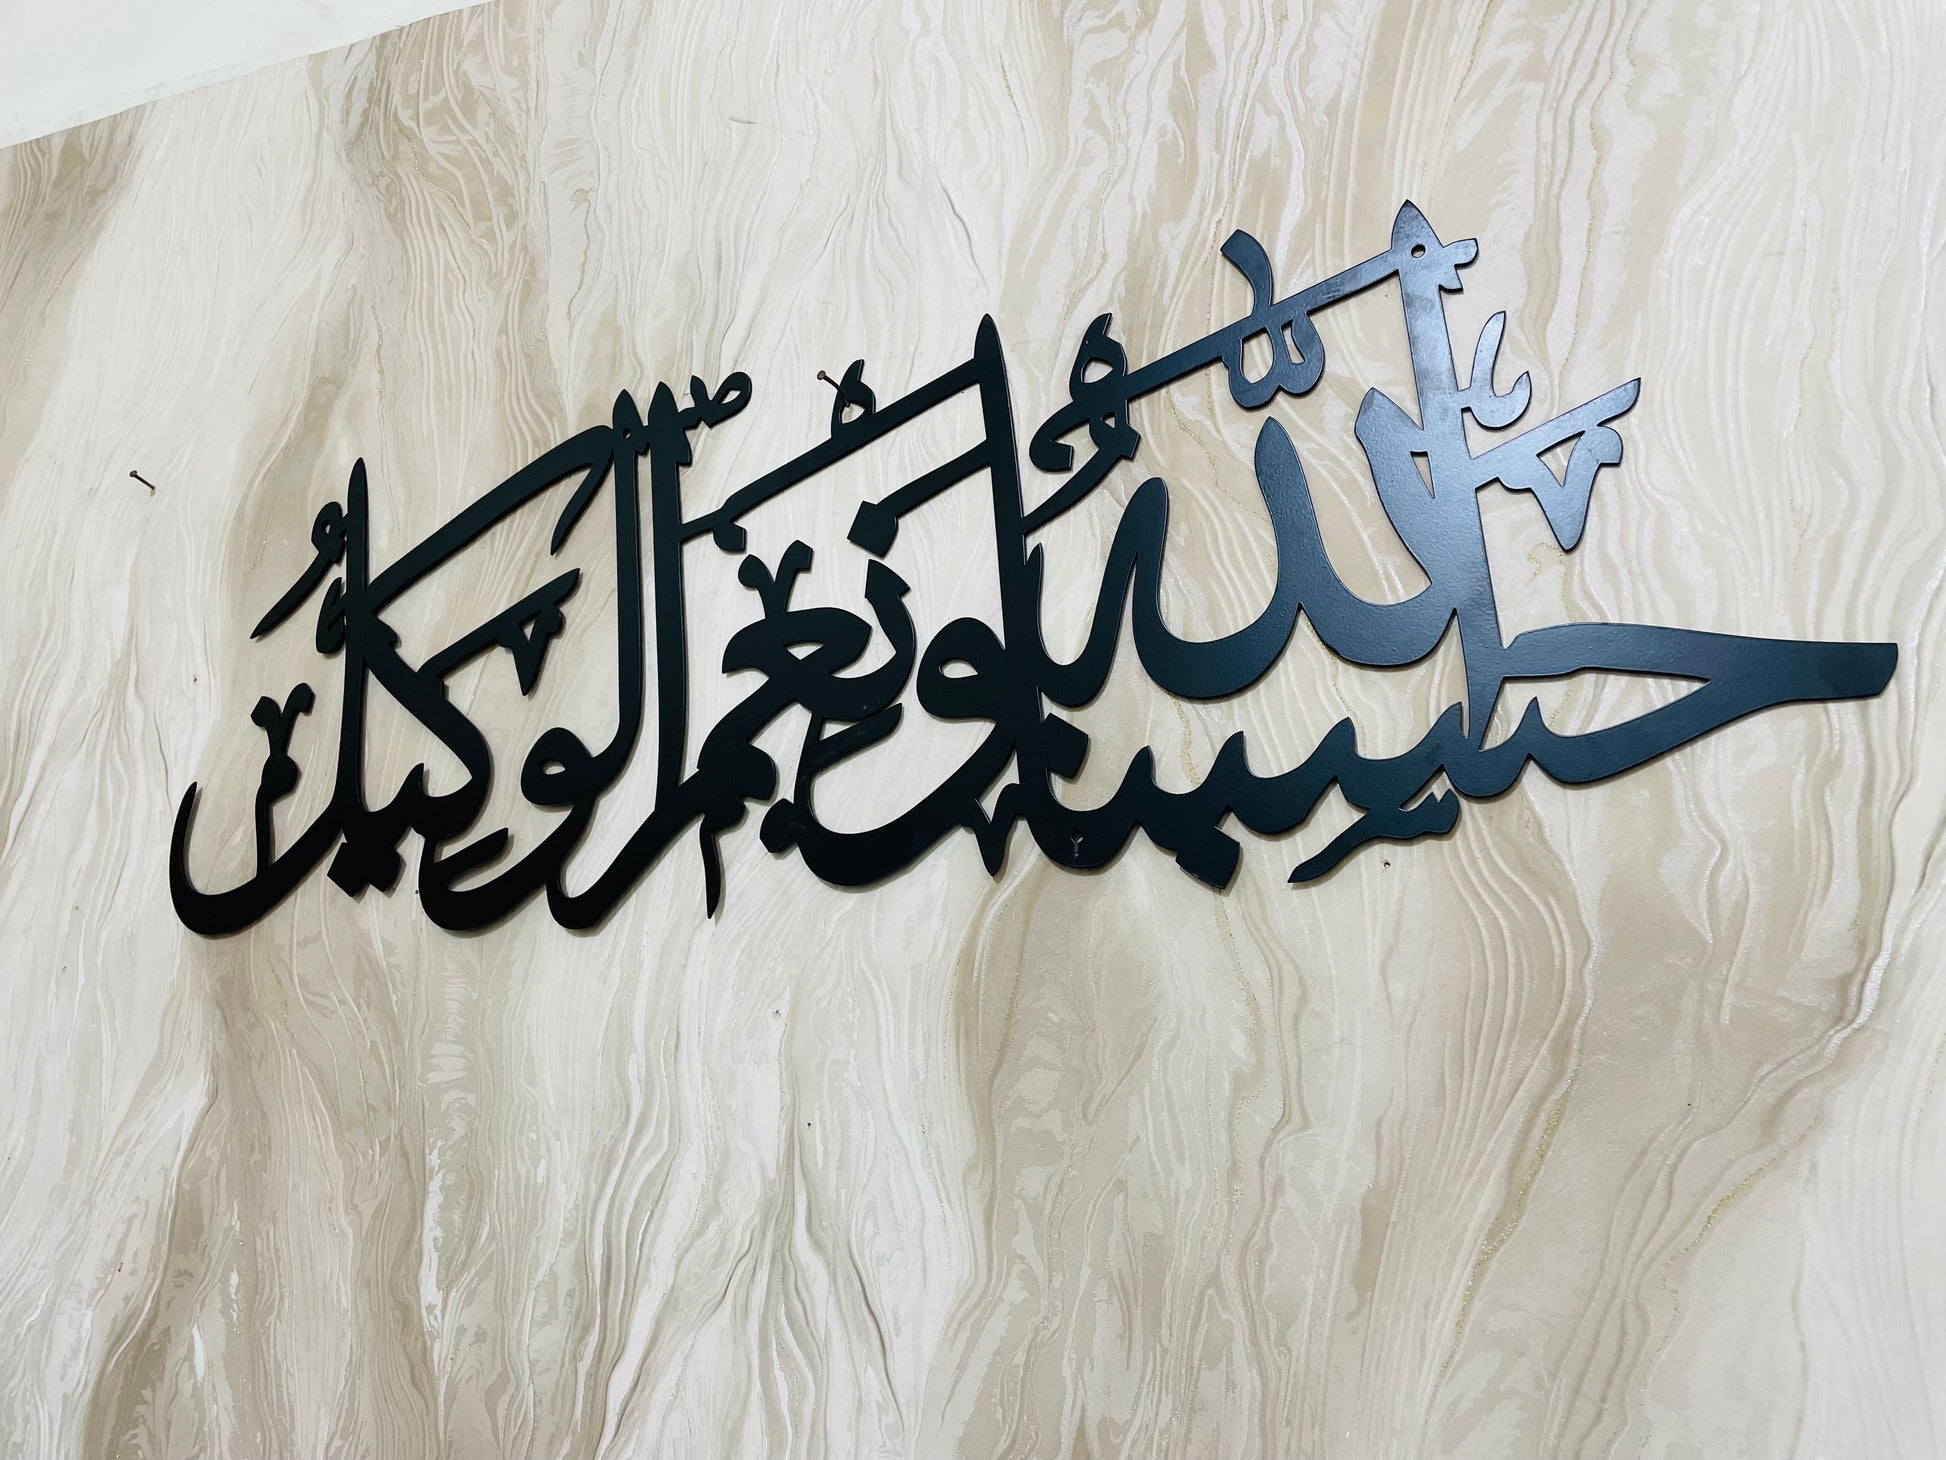 حَسْبُنَا اللهُ وَنِعْمَ الْوَكِيلُ